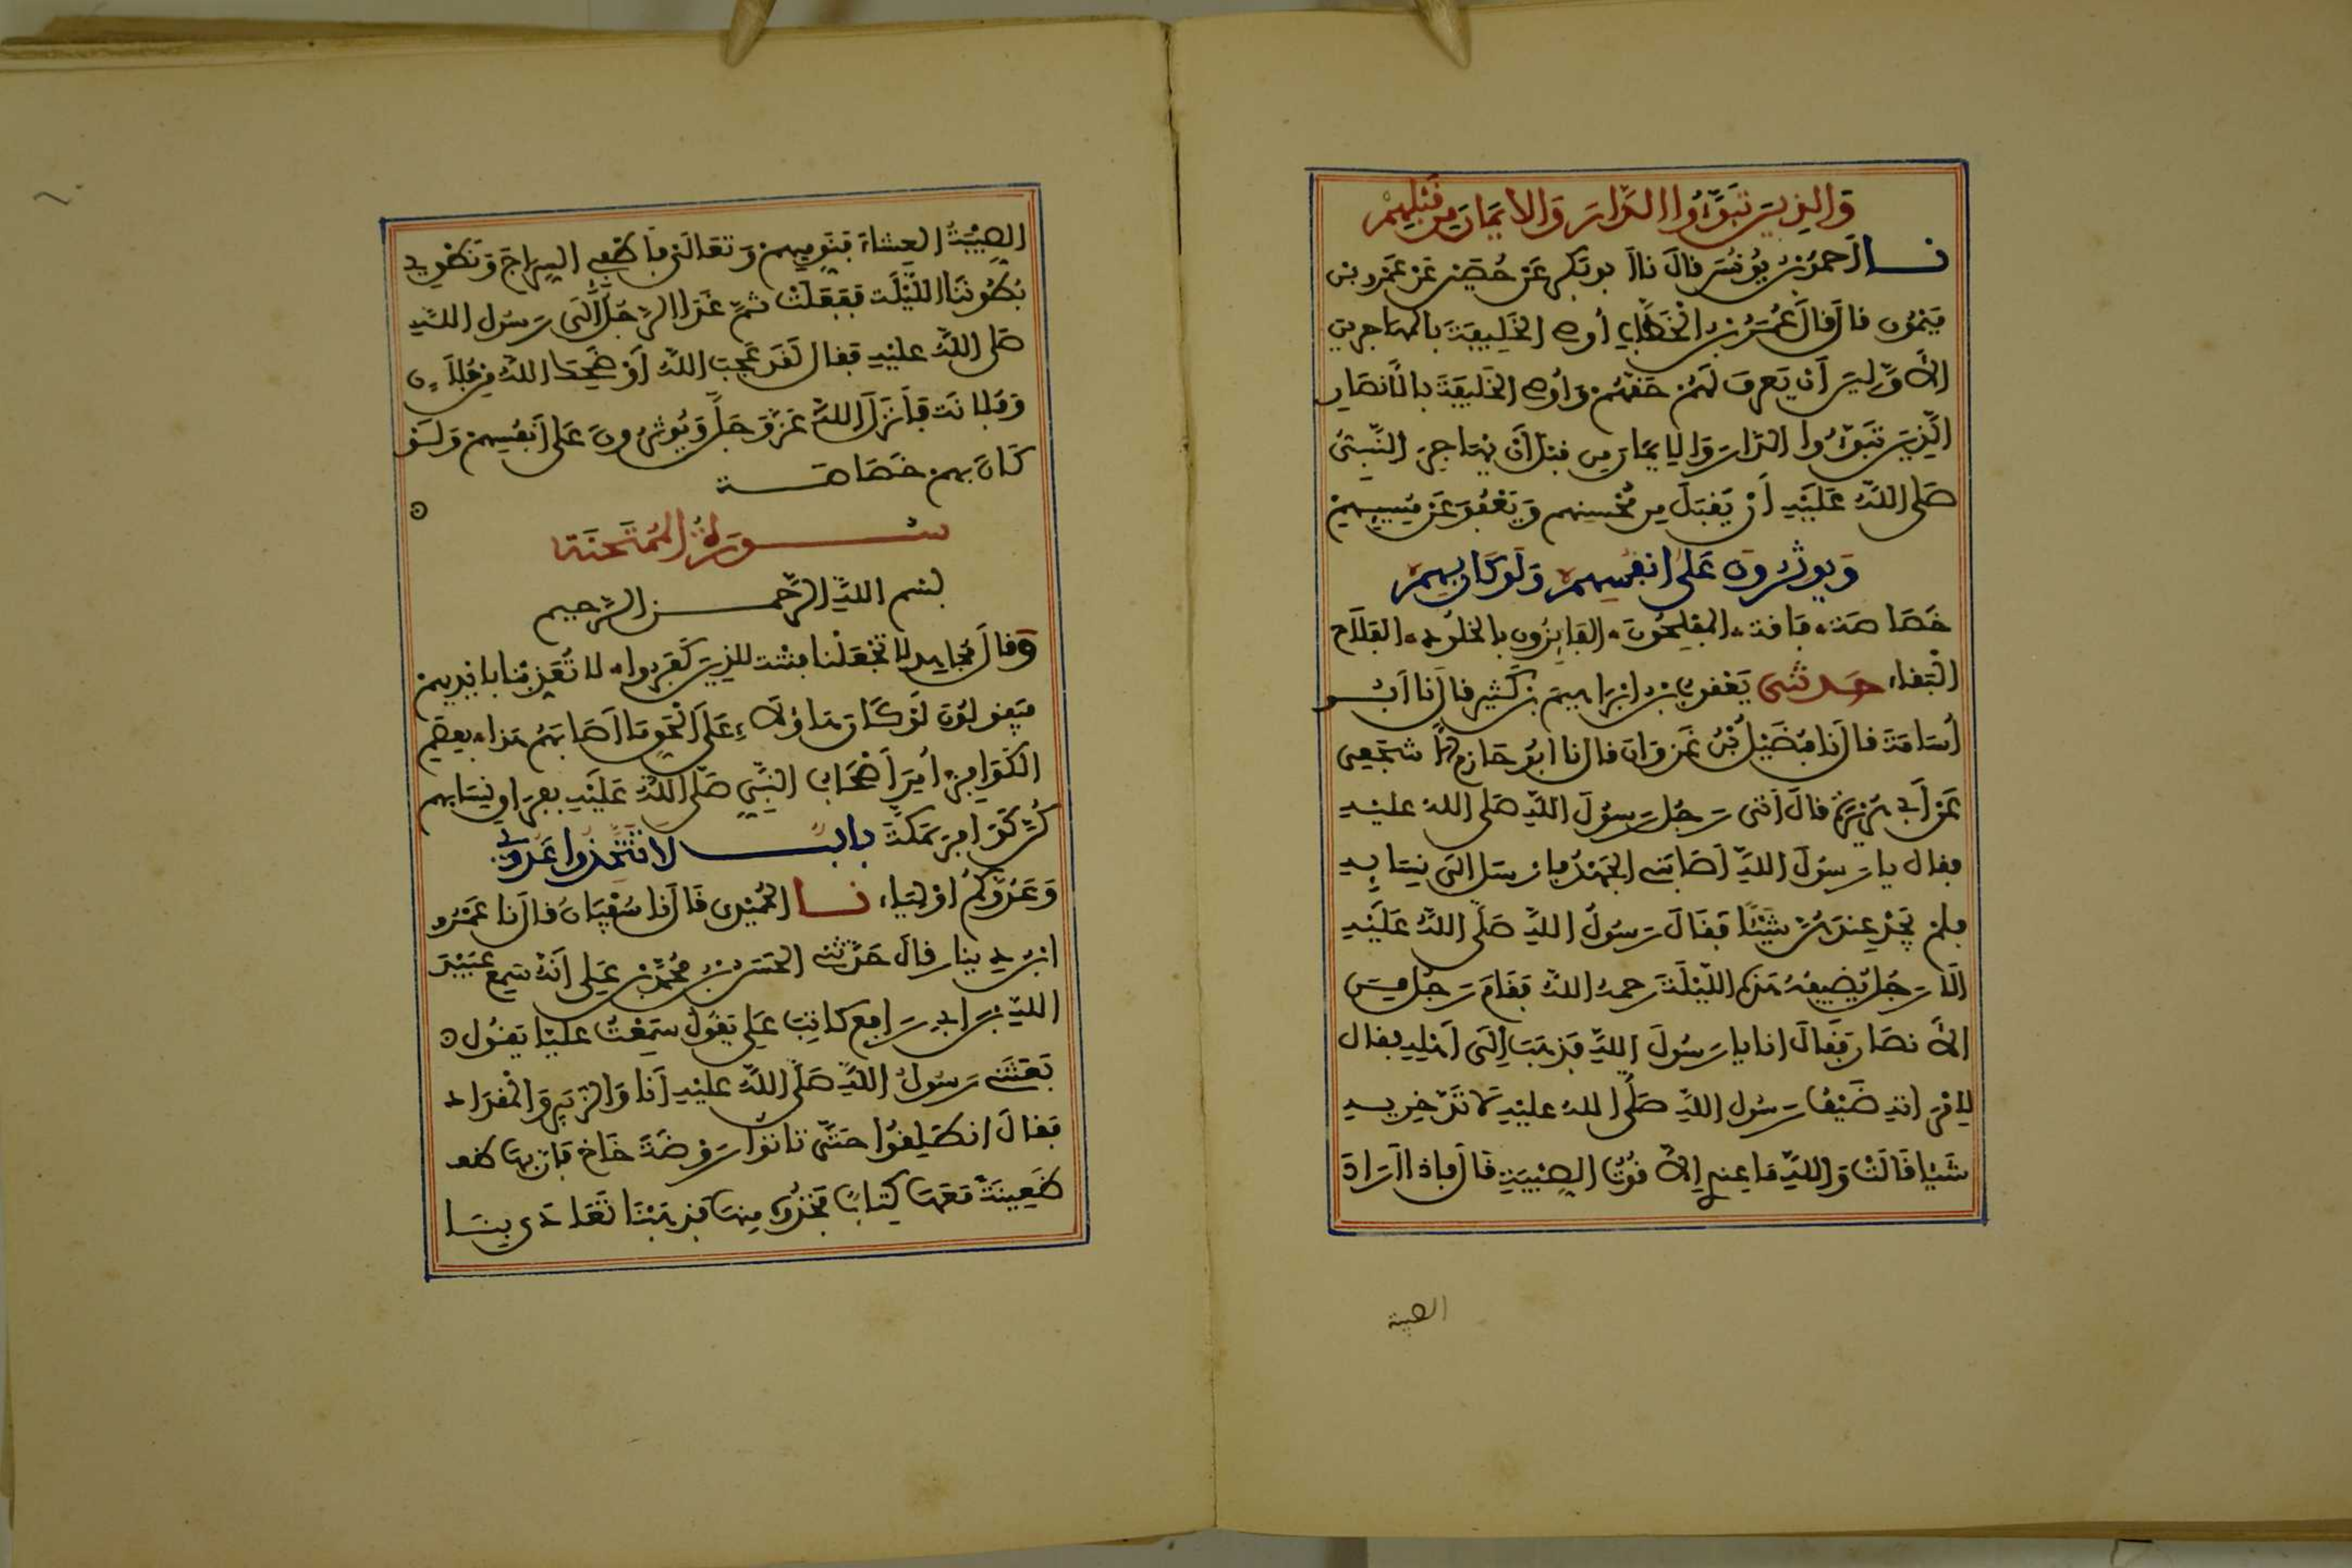 والذين تبوءوا الدار والايمان من قبلهم
نا احمد بن يونس قال نا ابو بكر عن حصين عن عمرو بن
ميمون قال قال عمر بن الخطاب أوصي الخليفة بالمهاجرين
الأولين أن يعرف لهم حقهم وأوصي الخليفة بالأنصار
الذين تبوءوا الدار والإيمان من قبل أن يهاجر النبيُّ
صلى الله عليه أن يقبل من محسنهم ويعفو عن مسيئهم
ويوثرون على انفسهم ولو كان بهم
خصاصة فاقة المفلحون الفايزون بالخلود الفلاح
البقاء حدثني يعقوب بن ابراهيم بن كثير قال نا ابو
أسامة قال نا فضيل بن غزوان قال نا ابو حازم الأشجعي
عن أبي هريرة قال أتى رجل رسول الله صلى الله عليه
فقال يا رسول الله أصابني الجهد فارسل الى نسايه
فلم يجد عندهن شيئا فقال رسول الله صلى الله عليه
الا رجل يضيفه هذه الليلة رحمه الله فقام رجل من
الأنصار فقال انا يا رسول الله فذهب إلى أهله فقال
لامرأته ضيف رسول الله صلى الله عليه لا تدخريه
شيا قالت والله ما عندي إلا قوت الصبية قال فاذا أراد
الصبية
الصبية العشاء فنوميهم وتعالى فاطفيي السراج ونطوي
بطوننا الليلة ففعلت ثم غدا الرجل إلى رسول الله
صلى الله عليه فقال لقد عجب الله أو ضحك الله من فلان
وفلانة فأنزل الله عز وجل ويوثرون على أنفسهم ولو
كان بهم خصاصة
سورة الممتحنة
بسم الله الرحمن الرحيم
وقال مجاهد لا تجعلنا فتنة للذين كفروا لا تعذبنا بايديهم
فيقولون لو كان هاؤلاء على الحق ما اصابهم هذا بعصم
الكوافر أمر أصحاب النبي صلى الله عليه بفراق نسايهم
كن كوافر بمكة باب لا تتخذوا عدوي
وعدوكم اولياء نا الحميدي قال نا سفيان قال نا عمرو
ابن دينار قال حدثني الحسن بن محمد بن علي أنه سمع عبيد
الله بن ابي رافع كاتب علي يقول سمعت عليا يقول
بعثني رسول الله صلى الله عليه أنا والزبير والمقداد
فقال انطلقوا حتى تاتوا روضة خاخ فان بها ظعـ
ظعينة معها كتاب فخذوه منها فذهبنا تعادى بنا